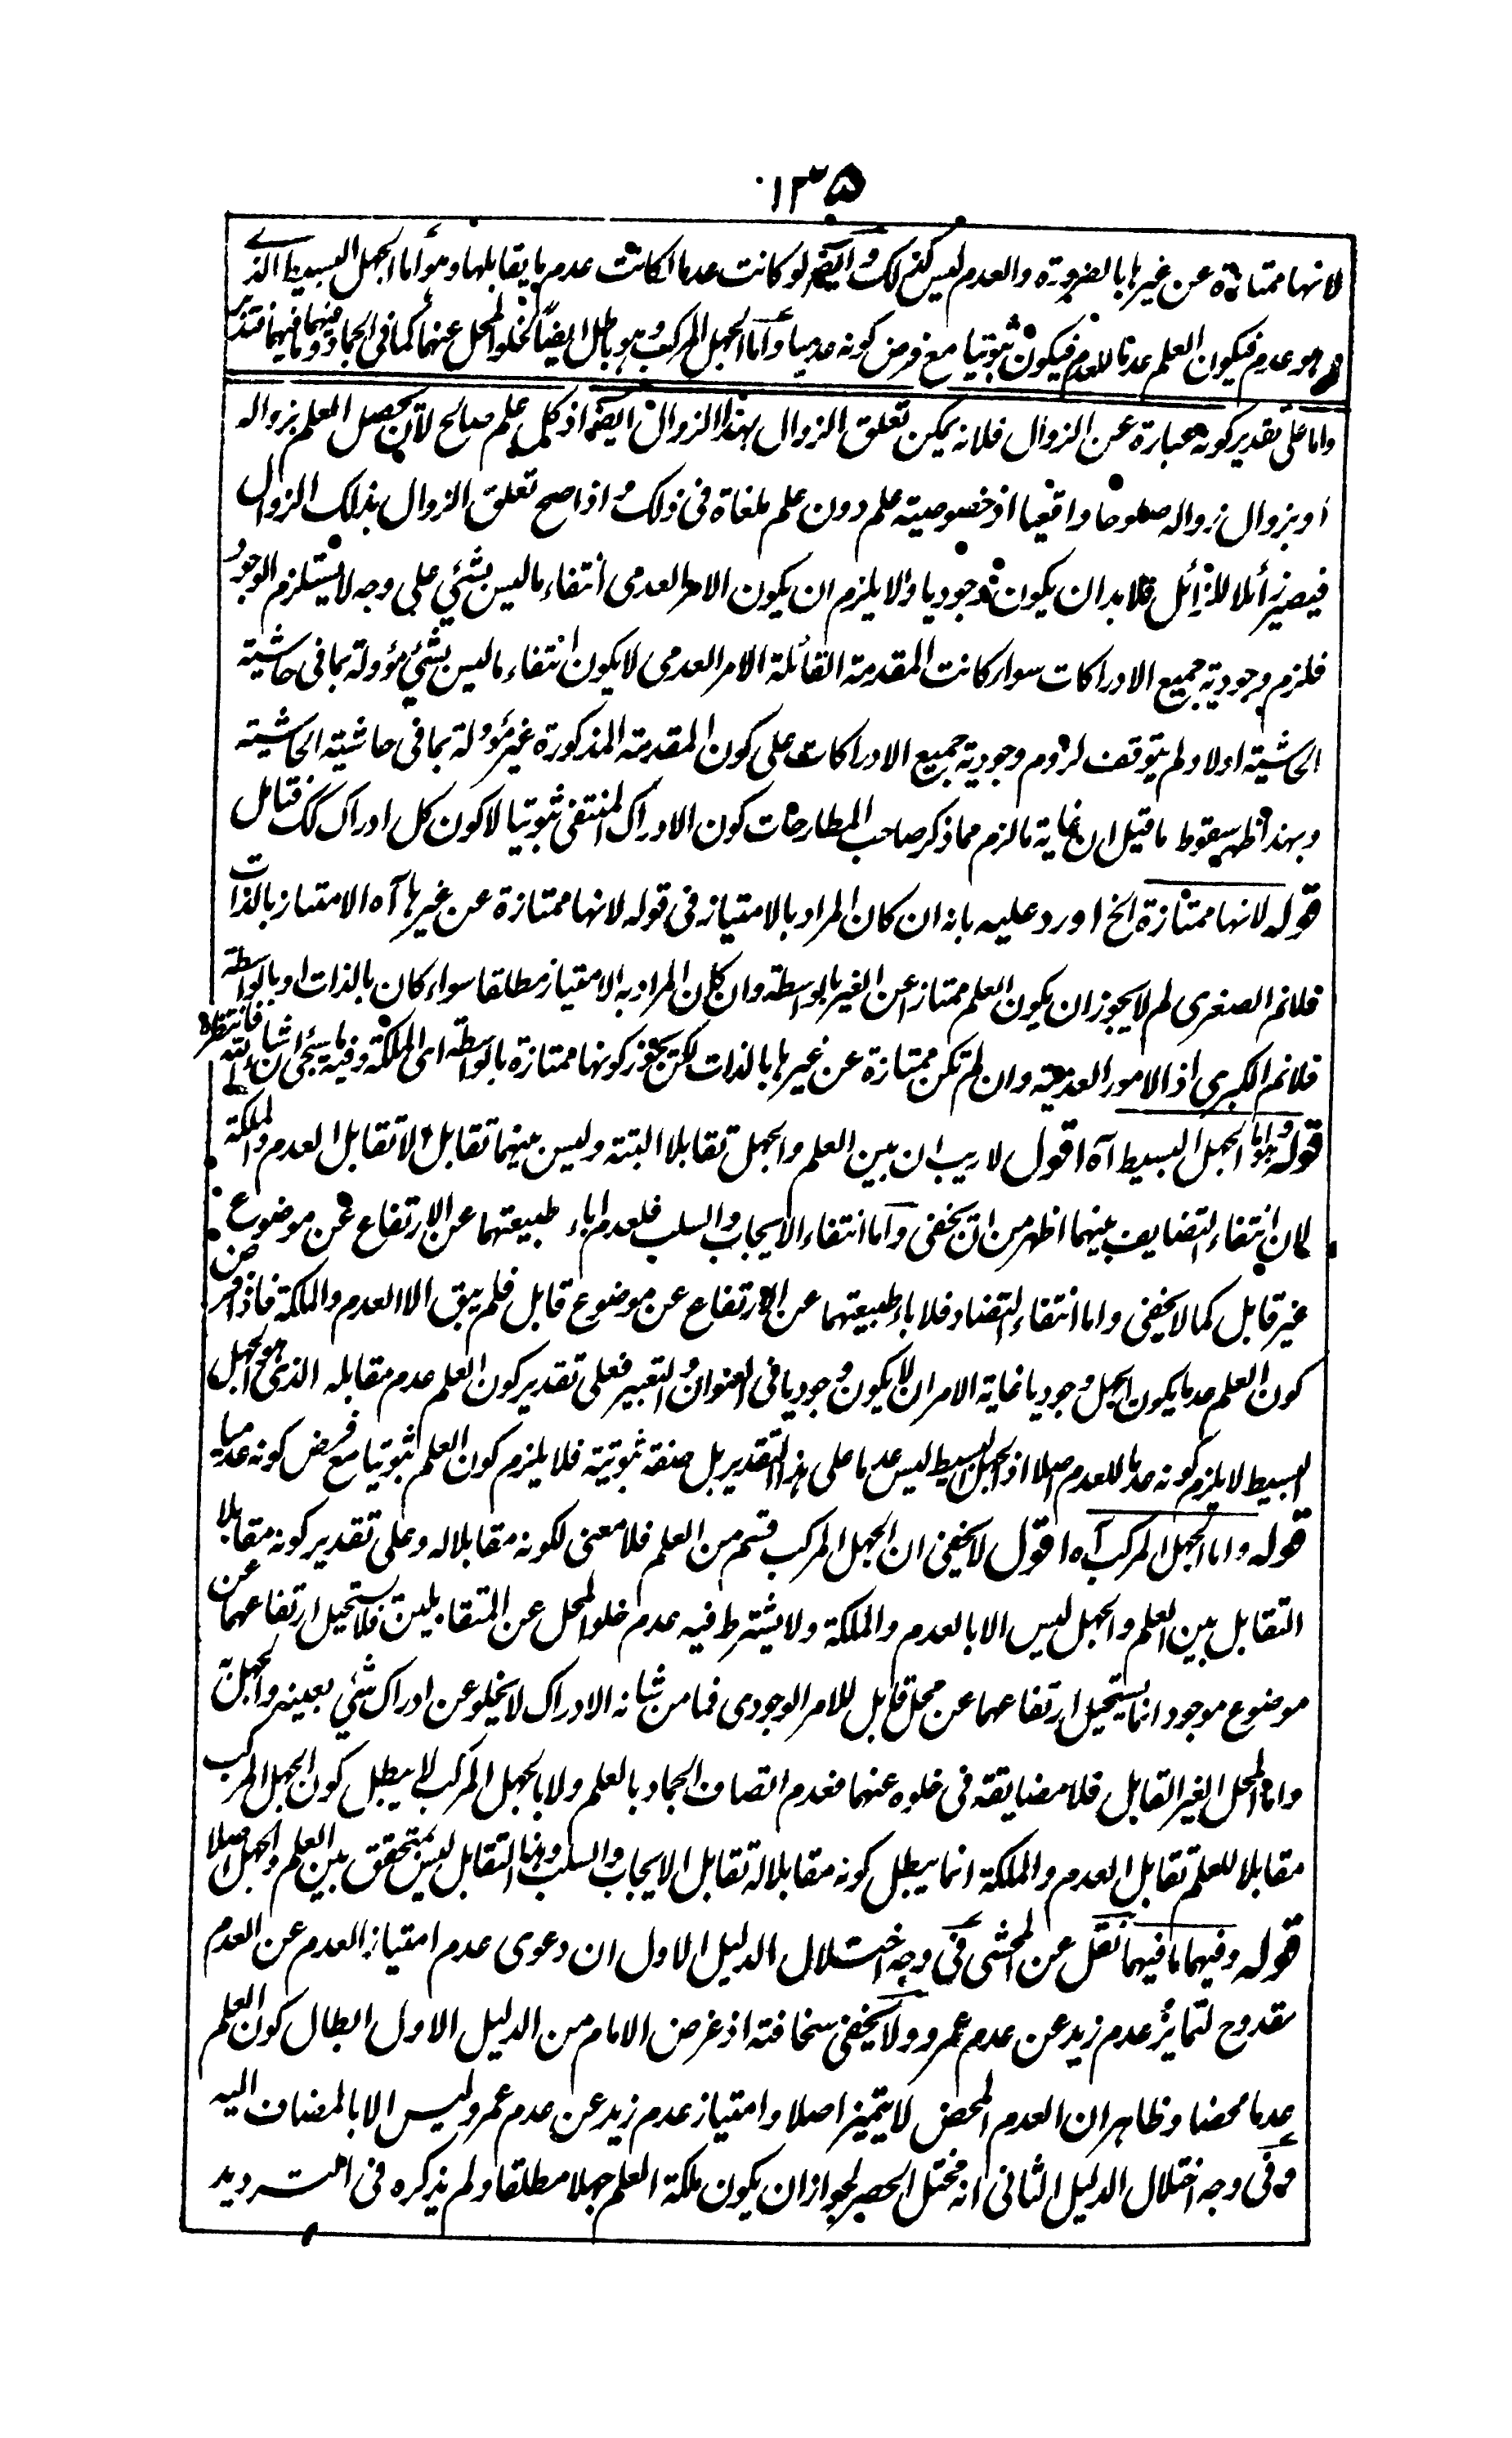 ١٣٥
لانها ممتازة عن غيرها بالضرورة والعدم ليس كذلك وايضا لو كانت عدما لكانت عدم ما يقابلها وهو أما الجهل البسيط الذے
هو عدم فيكون العلم عدما للعدم فيكون ثبوتيا مع فرض كونه عدميا وأما الجهل المركب وهو باطل ايضا لخلو المحل عنهما كما فى الجماد وفيهما ما فيهما فتدبر
واما على تقدير كونه عبارة عن الزوال فلانه يمكن تعلق الزوال بهذا الزوال ايضا اذ كل علم صالح لأن يحصل العلم بزواله
أو بزوال زواله صلوحا واقعيا اذ خصوصية علم دون علم ملغاة فى ذلك واذا صح تعلق الزوال بذلك الزوال
فيصير زائلا للزائل فلا بد ان يكون وجوديا والا يلزم ان يكون الامر العدمى انتفاء ما ليس بشئي على وجه لا يستلزم الوجود
فلزم وجودية جميع الادراكات سواء كانت المقدمة القائلة الامر العدمى لا يكون انتفاء ما ليس بشئي مؤولة بما فى حاشية
الحاشية اولا ولم يتوقف لزوم وجودية جميع الادراكات على كون المقدمة المذكورة غير مؤولة بما فى حاشية الحاشية
وبهذا ظهر سقوط ما قيل ان غاية ما لزم مما ذكر صاحب المطارحات كون الادراك المنتفى ثبوتيا لا كون كل ادراك كك فتامل
قوله لانها ممتازة الخ اورد عليه بانه ان كان المراد بالامتياز فى قوله لانها ممتازة عن غيرها آه الامتياز بالذات
فلانم الصغرى لم لا يجوز ان يكون العلم ممتازا عن الغير بالواسطة وان كان المراد به الامتياز مطلقا سواء كان بالذات او بالواسطة
فلانم الكبرى اذ الامور العدمية وان لم تكن ممتازة عن غيرها بالذات لكن يجوز كونها ممتازة بالواسطة اى الملكة وفيه ما سيجئ ان شاء الله فانتظره
قوله وهو اما الجهل البسيط آه اقول لا ريب ان بين العلم والجهل تقابلا البتة وليس بينهما تقابل الا تقابل العدم والملكة
لان انتفاء التضايف بينهما اظهر من ان يخفى وأما انتفاء الايجاب والسلب فلعدم اباء طبيعتهما عن الارتفاع عن موضوع
غير قابل كما لا يخفى واما انتفاء التضاد فلاباء طبيعتهما عن الارتفاع عن موضوع قابل فلم يبق الا العدم والملكة فاذا فرض
كون العلم عدما يكون الجهل وجوديا غاية الامر ان لا يكون وجوديا فى العنوان والتعبير فعلى تقدير كون العلم عدم مقابله الذى هو الجهل
البسيط لا يلزم كونه عدما للعدم اصلا اذ الجهل البسيط ليس عدما على هذا التقدير بل صفة ثبوتية فلا يلزم كون العلم ثبوتيا مع فرض كونه عدميا
قوله واما الجهل المركب آه اقول لا يخفى ان الجهل المركب قسم من العلم فلا معنى لكونه مقابلا له وعلى تقدير كونه مقابلا
التقابل بين العلم والجهل ليس الا بالعدم والملكة ولا يشترط فيه عدم خلو المحل عن المتقابلين فلا يستحيل ارتفاعهما عن
موضوع موجود انما يستحيل ارتفاعهما عن محل قابل للامر الوجودى فما من شانه الادراك لا يخلو عن ادراك شئي بعينه والجهل به
واما المحل الغير القابل فلا مضايقة فى خلوه عنهما فعدم اتصاف الجماد بالعلم ولا بالجهل المركب لا يبطل كون الجهل المركب
مقابلا للعلم تقابل العدم والملكة انما يبطل كونه مقابلا له تقابل الايجاب والسلب وهذا التقابل ليس بمتحقق بين العلم والجهل اصلا
قوله وفيهما ما فيهما نقل عن المحشى فى وجه اختلال الدليل الاول ان دعوى عدم امتياز العدم عن العدم
مقدوح لتمايز عدم زيد عن عدم عمرو ولا يخفى سخافته اذ غرض الامام من الدليل الاول ابطال كون العلم
عدما محضا وظاهر ان العدم المحض لا يتميز اصلا وامتياز عدم زيد عن عدم عمرو ليس الا بالمضاف اليه
وفى وجه اختلال الدليل الثانى انه مختل الحصر لجواز ان يكون ملكة العلم جهلا مطلقا ولم يذكره فى الترديد